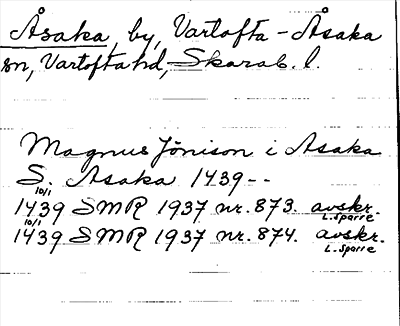 Åsaka, by, Vartofta-Åsaka
sn, Vartofta hd, Skarab. l.
Magnus Jönison i Asaka
S. Asaka 1439--
10/1
1439 SMR 1937 nr. 873. avskr.
L. Sparre
10/1
1439 SMR 1937 nr. 874. avskr.
L. Sparre